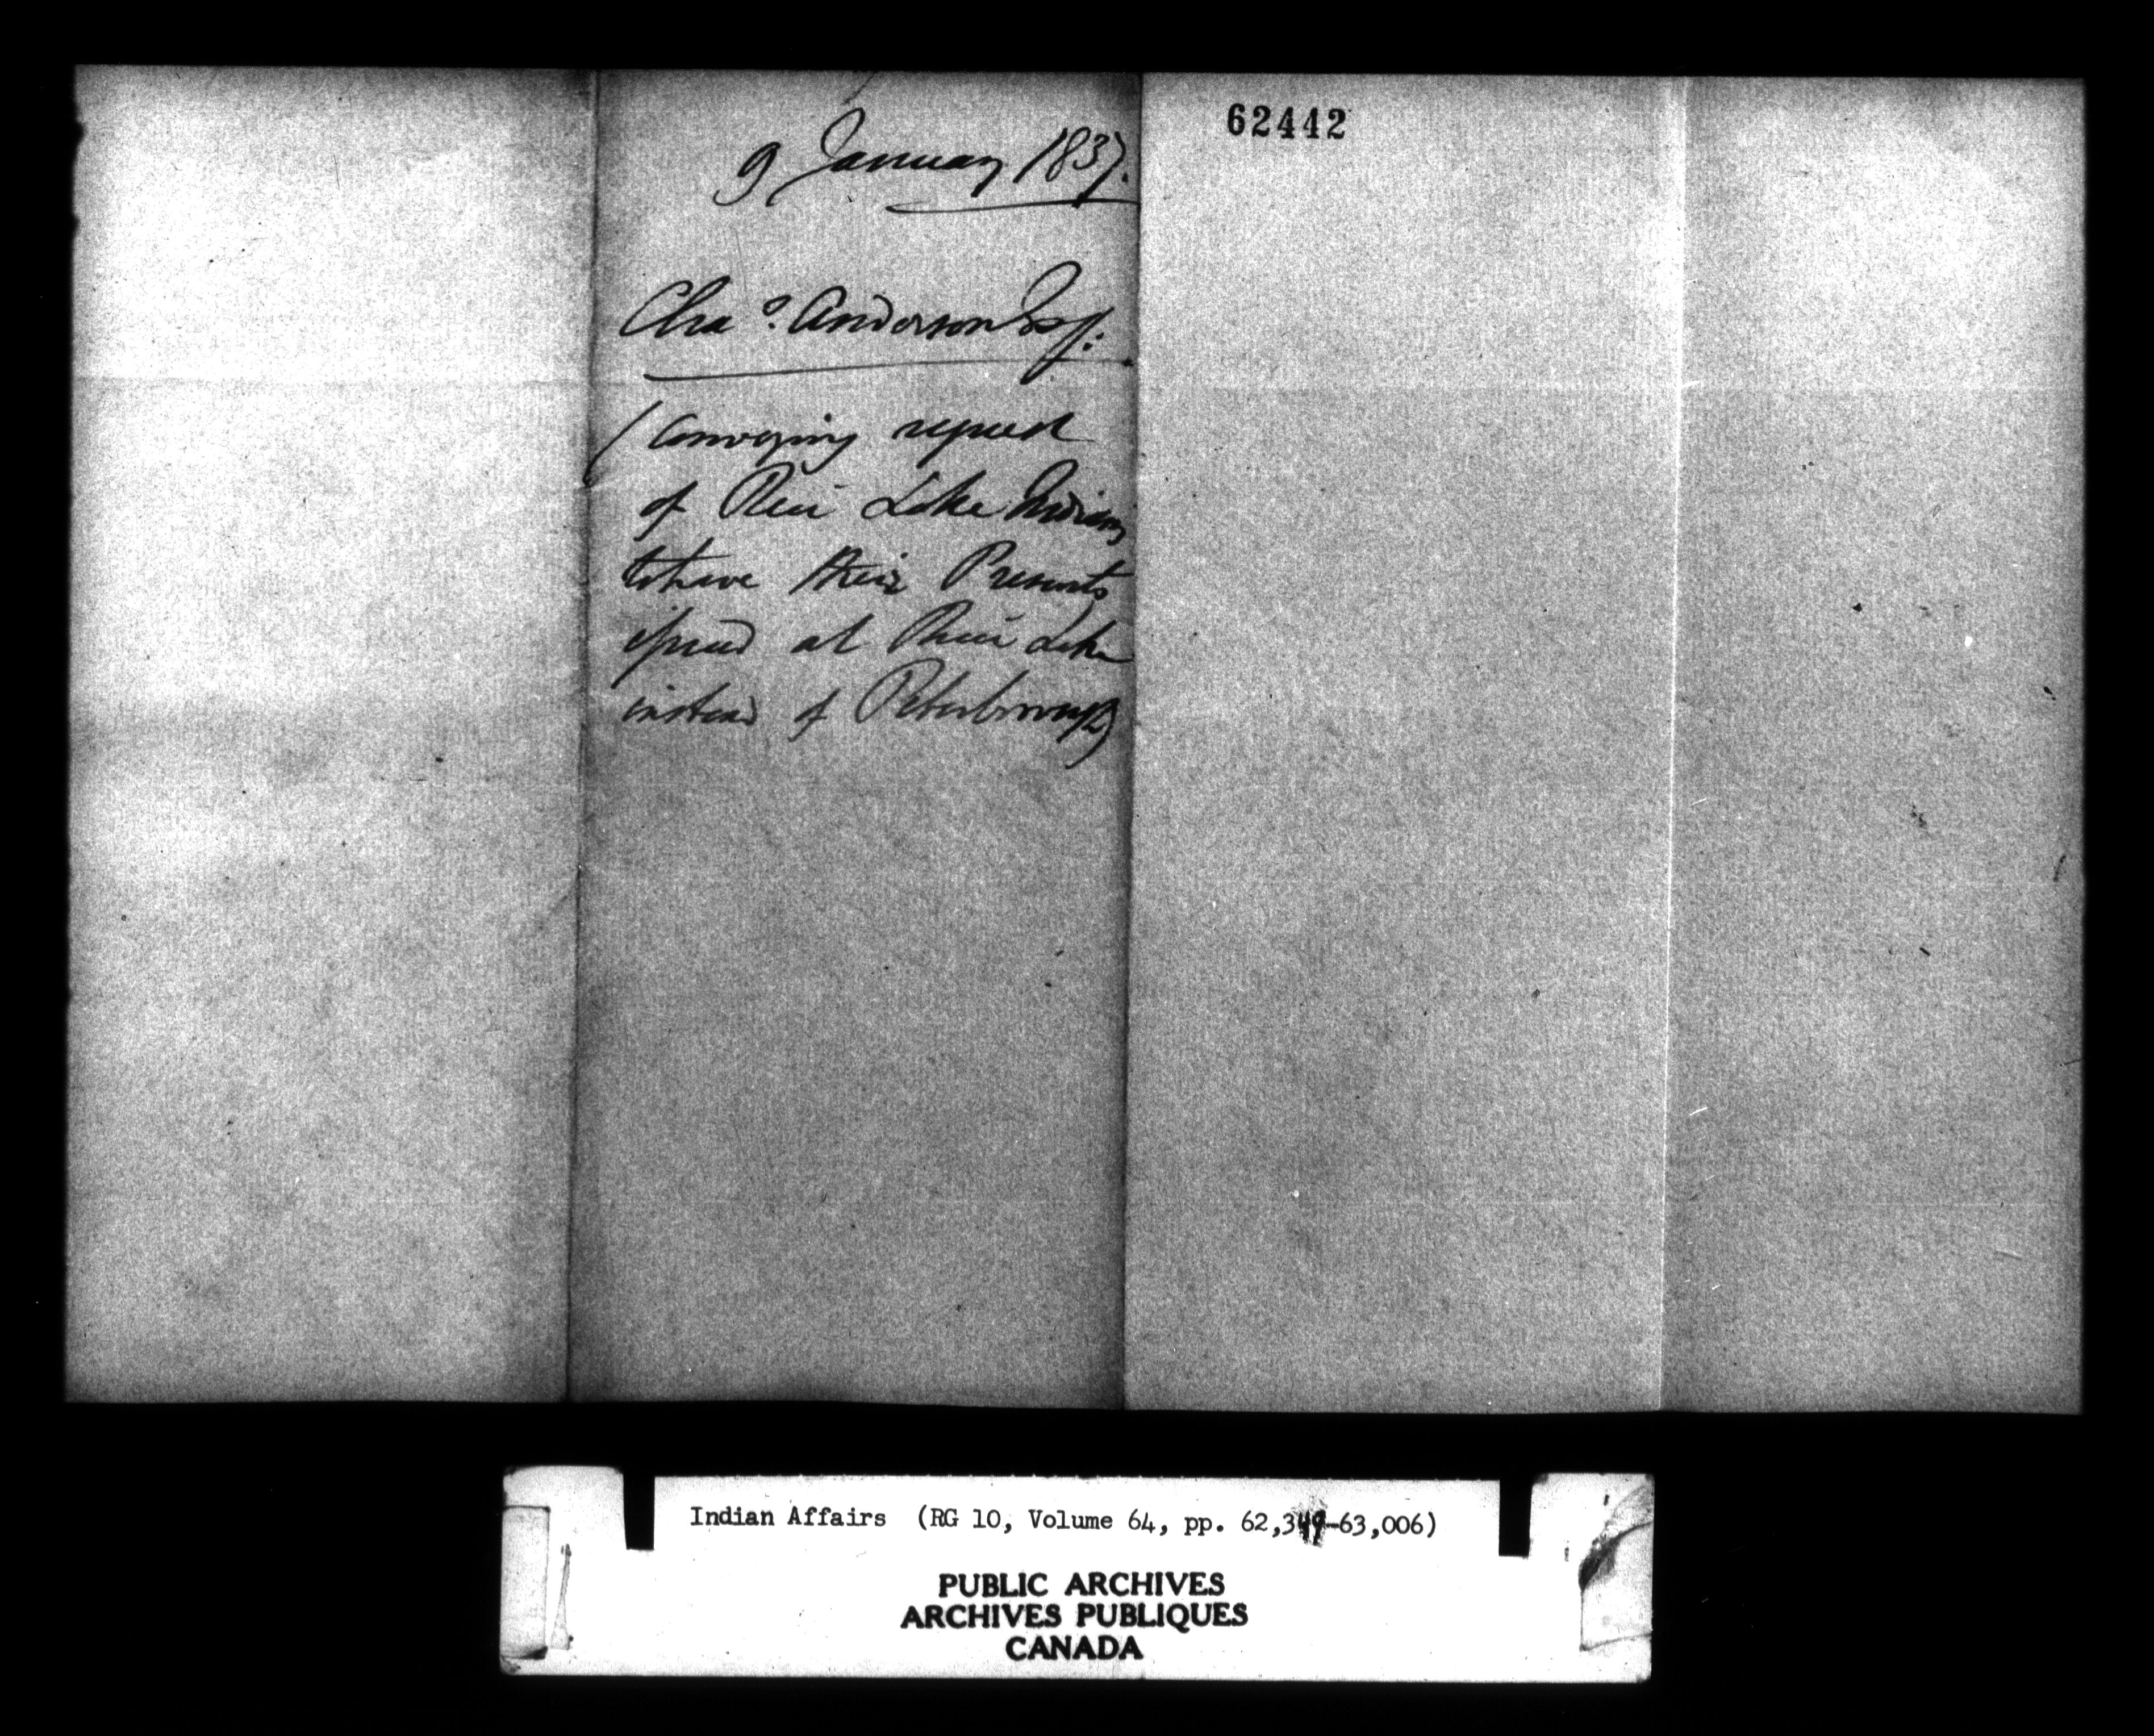 9 January 1837.
Chas. Anderson Esq:
(Conveying request
of Rice Lake Indians
to have their Presents
issued at Rice Lake
instead of Peterborough)
62442
Indian Affairs (RG 10, Volume 64, pp. 62,349-63,006)
PUBLIC ARCHIVES
ARCHIVES PUBLIQUES
CANADA